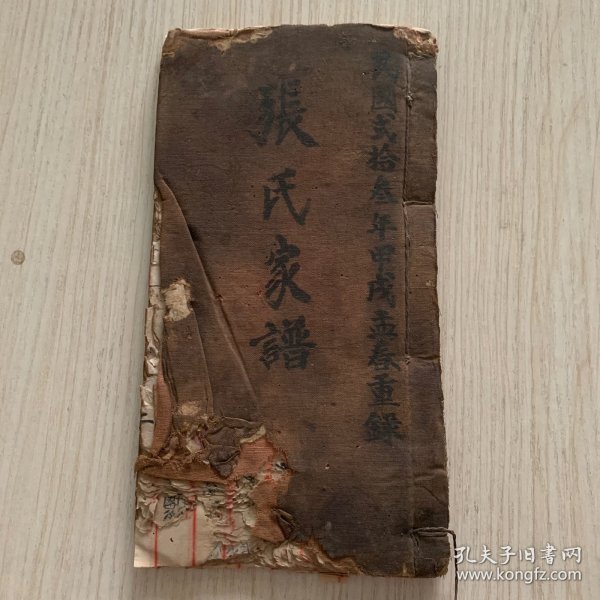 民國弍拾叁年甲戌孟春重錄
張氏家譜
孔夫子旧书网
www.kongfz.com